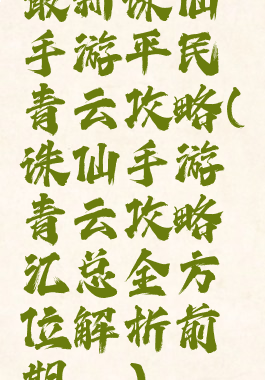 最新诛仙
手游平民
青云攻略(
诛仙手游
青云攻略
汇总全方
位解析前
期)